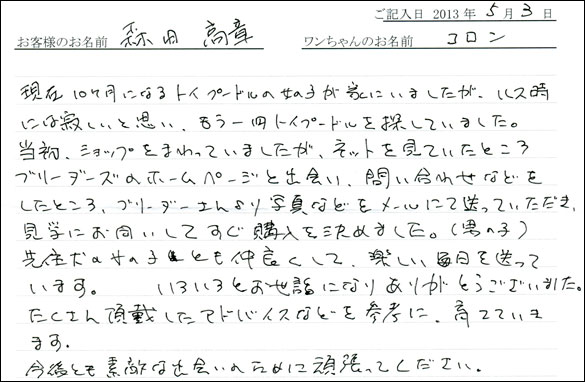 ご記入日 2013年 5月 3日
お客様のお名前 森田 高章 ワンちゃんのお名前 コロン
現在10ヶ月になるトイプードルの女の子が家にいましたが、ルス時
には寂しいと思い、もう一匹トイプードルを探していました。
当初、ショップをまわっていましたが、ネットを見ていたところ
ブリーダーズのホームページと出会い、問い合わせなどを
したところ、ブリーダーさんより写真などをメールにて送っていただき、
見学にお伺いしてすぐ購入を決めました。(男の子)
先住犬の女の子とも仲良くして、楽しい毎日を送って
います。 いろいろとお世話になりありがとうございました。
たくさん頂戴したアドバイスなどを参考に、育てていき
ます。
今後とも素敵な出会いのために頑張ってください。